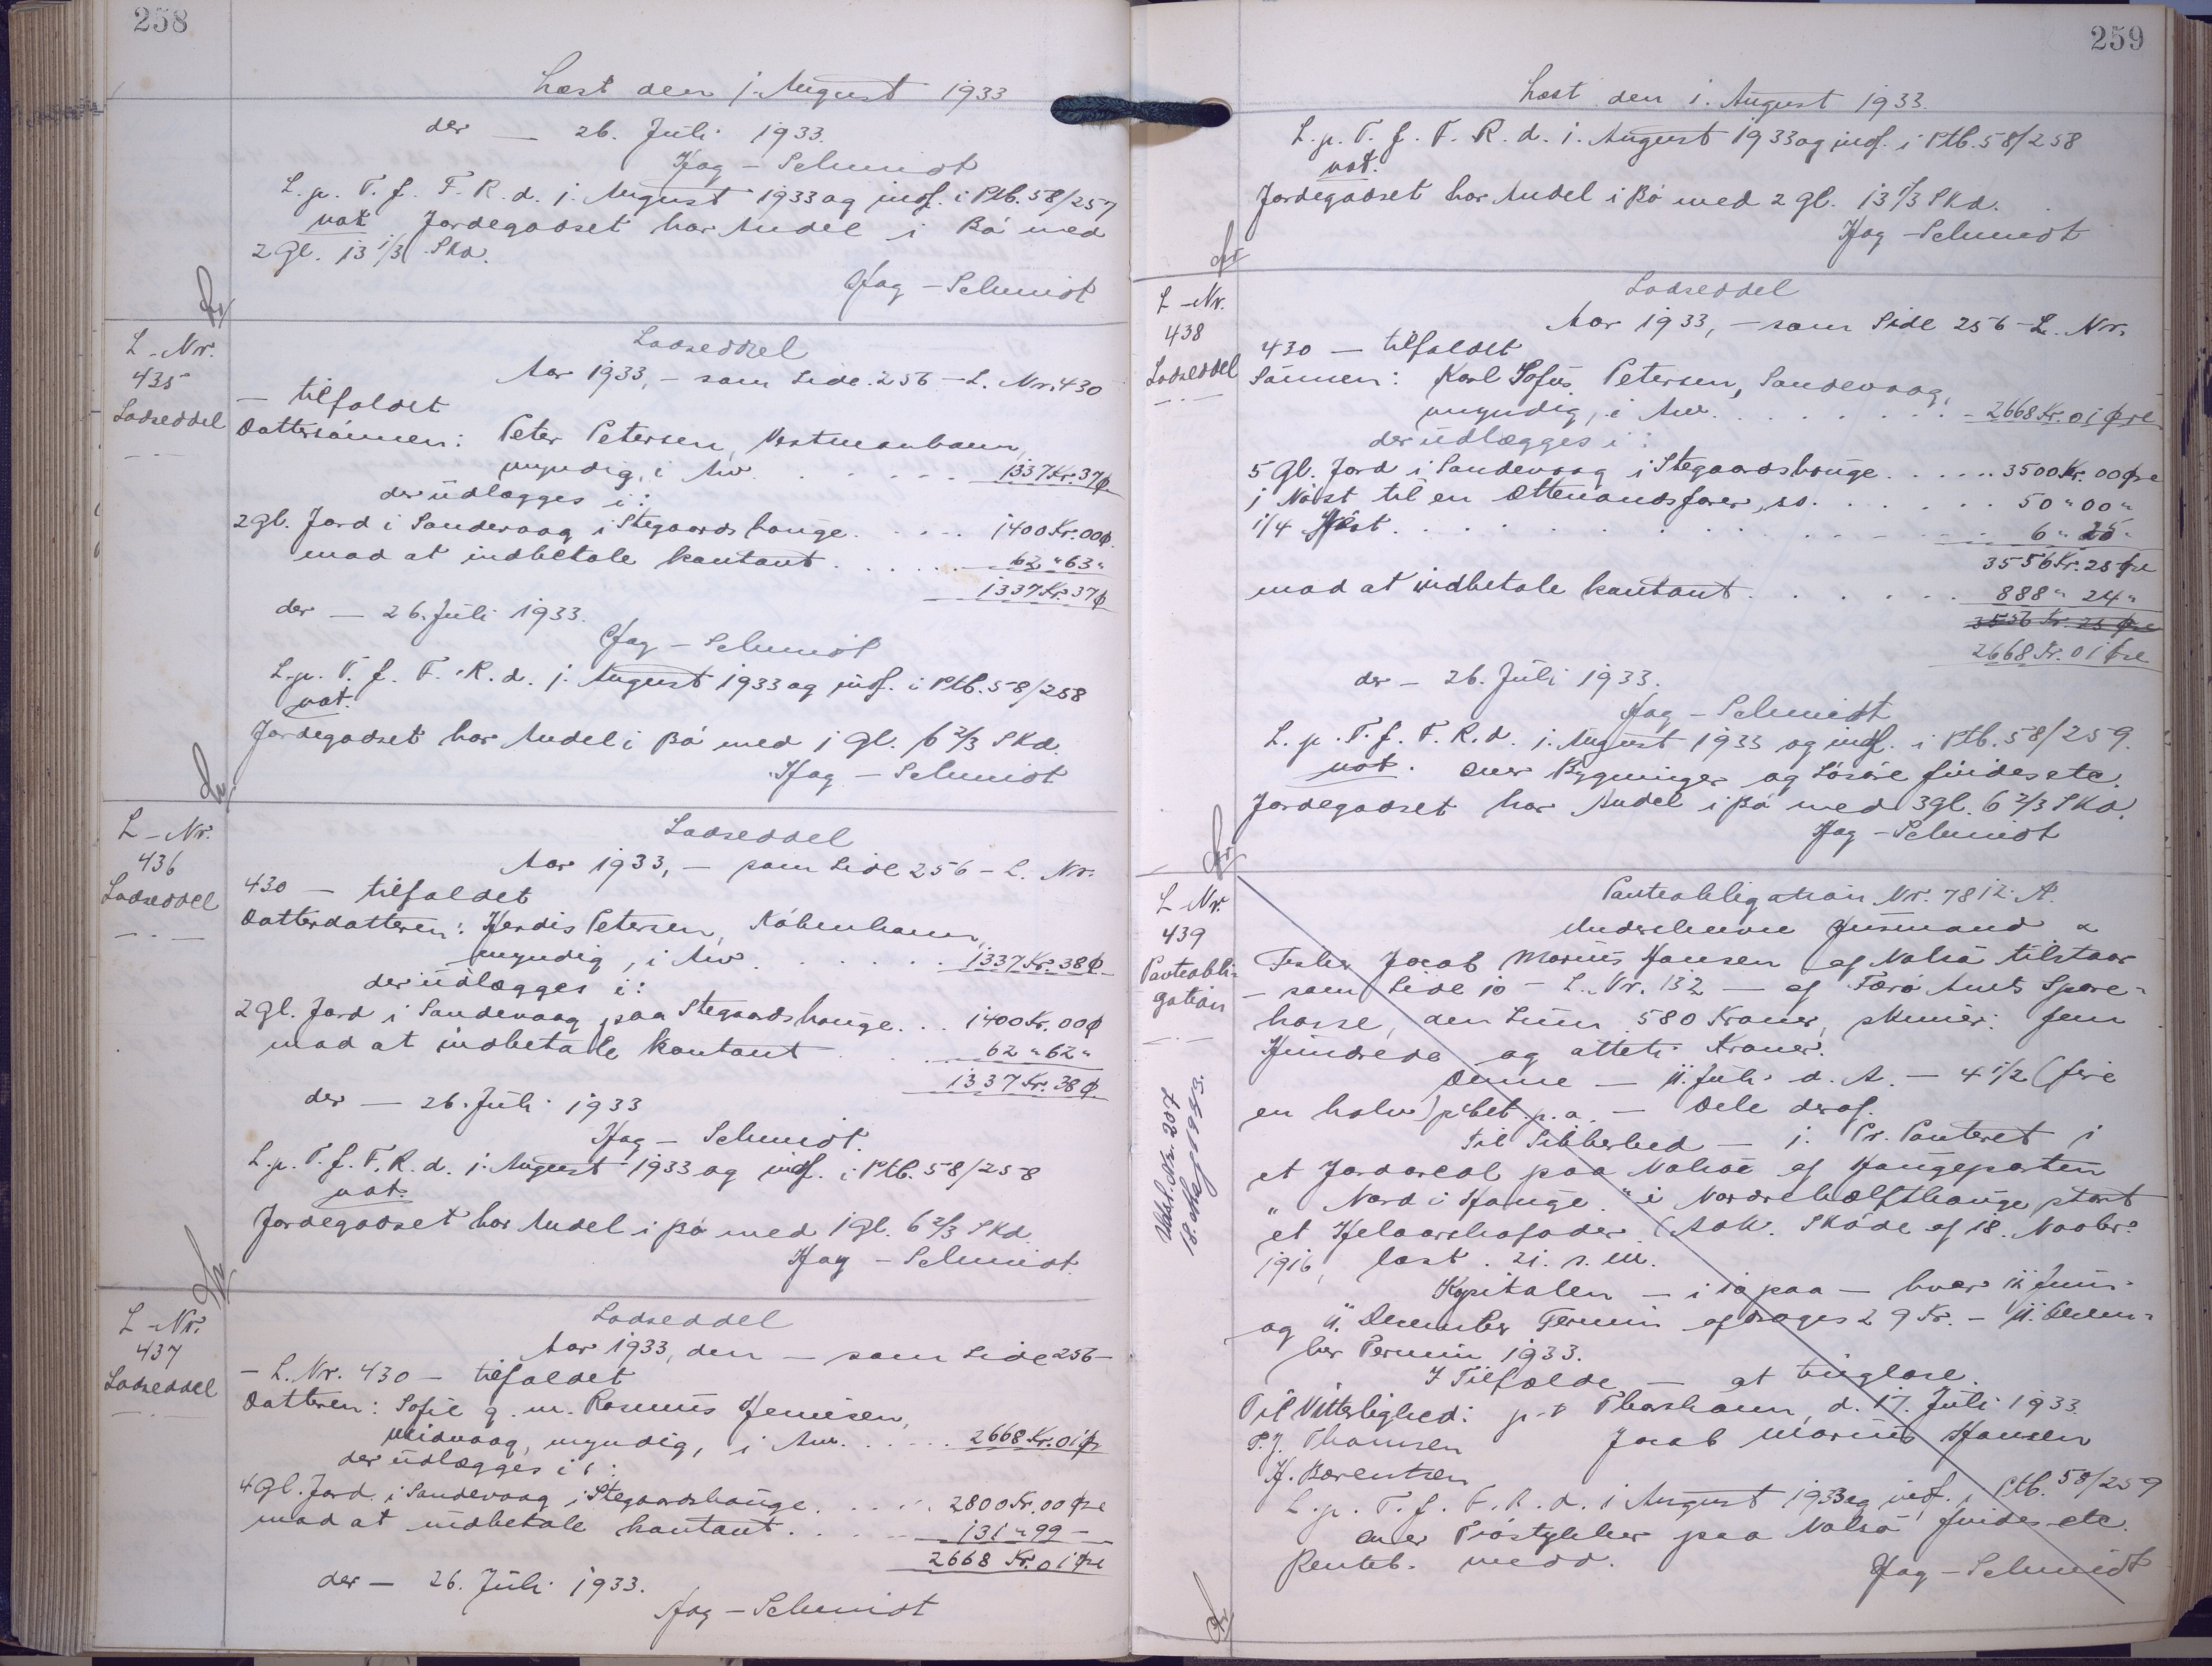 258
Læst den 1. August 1933
der — 26. Juli 1933.
Hag - Schmidt
L. p. T. f. F. R. d. 1. August 1933 og indf. i Ptb. 58/257
not Jordegodset har Andel i Bø med
2 Gl. 13 1/3 Skd.
Hag - Schmidt
L - Nr.
435
Lodseddel
Lodseddel
Aar 1933, - som Side 256 - L. Nr. 430
— tilfaldet
Dattersønnen: Peter Petersen, Vestmanhavn,
myndig, i Arv . . . . . 1337 Kr. 37 Ø.
der udlægges i:
2 Gl. Jord i Sandevaag i Stegaardshauge . . . . 1400 Kr. 00 Ø.
mod at indbetale kontant . . . . . 62 " 63 "
1337 Kr. 37 Ø
der — 26. Juli 1933.
Hag - Schmidt
L. p. T. f. F. R. d. 1. August 1933 og indf. i Ptb. 58/258
not.
Jordegodset har Andel i Bø med 1 Gl. 6 2/3 Skd.
Hag - Schmidt
L - Nr.
436
Lodseddel
Lodseddel
Aar 1933, - som Side 256 - L. Nr.
430 — tilfaldet
Datterdatteren: Herdis Petersen, København,
myndig, i Arv . . . . . 1337 Kr. 38 Ø.
der udlægges i:
2 Gl. Jord i Sandevaag paa Stegaardshauge . . . 1400 Kr. 00 Ø
mod at indbetale kontant . . . 62 " 62 "
1337 Kr. 38 Ø.
der — 26. Juli 1933
Hag - Schmidt.
L. p. T. f. F. R. d. 1. August 1933 og indf. i Ptb. 58/258
not.
Jordegodset har Andel i Bø med 1 Gl. 6 2/3 Skd.
Hag - Schmidt.
L - Nr.
437
Lodseddel
Lodseddel
Aar 1933, den — som Side 256 -
- L. Nr. 430 - tilfaldet
Datteren: Sofie g. m. Rasmus Henriksen,
Midvaag, myndig, i Arv . . . . . 2668 Kr. 01 Ø
der udlægges i:
4 Gl. Jord i Sandevaag i Stegaardshauge . . . . 2800 Kr. 00 Øre
mod at indbetale kontant . . . . 131 " 99 -
2668 Kr. 01 Øre
der — 26. Juli 1933.
Hag - Schmidt
259
Læst den 1. August 1933.
L. p. T. f. F. R. d. 1. August 1933 og indf. i Ptb. 58/258
not.
Jordegodset har Andel i Bø med 2 Gl. 13 1/3 Skd.
Hag - Schmidt
L - Nr.
438
Lodseddel
Lodseddel
Aar 1933, - som Side 256 - L. Nr.
430 — tilfaldet
Sønnen: Karl Sofus Petersen, Sandevaag,
myndig, i Arv . . . . . . 2668 Kr. 01 Øre
der udlægges i:
5 Gl. Jord i Sandevaag i Stegaardshauge . . . . . 3500 Kr. 00 Øre
1 Nøst til en Ottemandsfarer, . . . . . . 50 " 00 "
1/4 Hest . . . . . . . 6 " 25 "
3556 Kr. 25 Øre
mod at indbetale kontant . . . . . . 888 " 24 "
3556 Kr. 25 Øre
2668 Kr. 01 Øre
der — 26. Juli 1933.
Hag - Schmidt
L. p. T. f. F. R. d. 1. August 1933 og indf. i Ptb. 58/259.
not. Over Bygninger og Løsøre findes etc.
Jordegodset har Andel i Bø med 3 Gl. 6 2/3 Skd.
Hag - Schmidt
L Nr.
439
Panteobli-
gation
Udsl. Nr. 207
18. Maj 1953.
Panteobligation Nr. 7812 A.
Underskrevne Husmand &
Fisker Jacob Marius Hansen af Nolsø tilstaar
- som Side 10 - L. Nr. 132 — af Færø Amts Spare-
kasse, den Sum 580 Kroner, skriver: Fem
Hundrede og otteti Kroner.
Denne — 11. Juli d. A. — 4 1/2 (fire
en halv) pCt. p. a. — Dele deraf.
Til Sikkerhed — 1. Pr. Panteret i
et Jordareal paa Nolsø af Haugeparten
" Nord i Hauge " i Nordrehalfthauge stort
et Helaarskofoder (Adk. Skøde af 18. Novbr.
1916, læst. 21. s. M.
Kapitalen — i 10 paa — hver 11 Juni-
og 11. December Termin afdrages 29 Kr. - 11. Decem-
ber Termin 1933.
I Tilfælde — at tinglæse.
Til Vitterlighed: p.t. Thorshavn, d. 17. Juli 1933.
P. J. Thomsen Jacob Marius Hansen
H. Berentsen
L. p. T. f. F. R. d. 1 August 1933 og indf. i Ptb. 58/259
Over Træstykker paa Nolsø findes etc.
Renteb. medd.
Hag - Schmidt